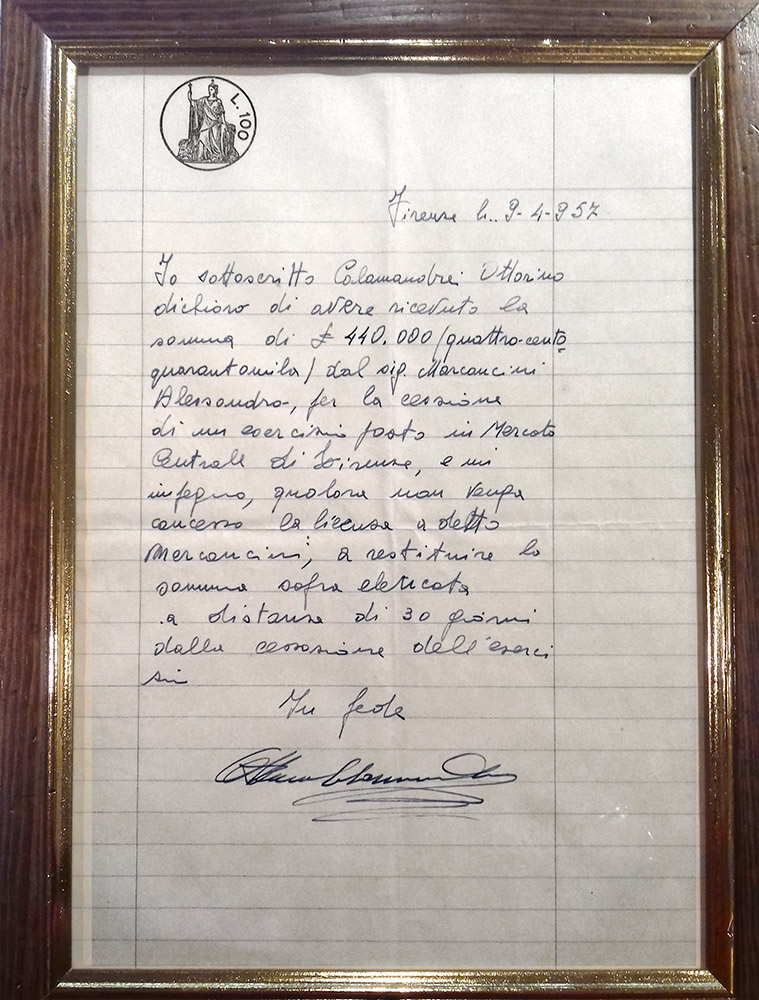 L. 100
Firenze li.. 9-4-957
Io sottoscritto Calamandrei Ottorino
dichiaro di avere ricevuto la
somma di £ 440.000 (quattro-cento
quarantamila) dal sig. Marcancini
Alessandro, per la cessione
di un esercizio posto in Mercato
Centrale di Firenze, e mi
impegno, qualora non venga
concesso la licenza a detto
Mercancini, a restituire la
somma sopra
a distanza di 30 giorni
dalla cessazione dell'eserci
In fede